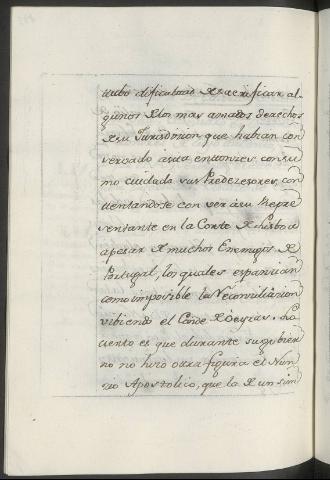 tubo dificultad de sacrificar al-
gunos de los mas amados derechos
de su Jurisdiccion que habian con
servado àsta entonzes, con su
mo cuidado sus Predezesores, con
tentandose con ver à su Repre
sentante en la Corte de Lisboa
apesar de muchos Enemigos de
Portugal, los quales esparcian
como imposible la Reconciliacion
vibiendo el Conde de Oeyras. Lo
cierto es que durante su gobier
no no hizo otra figura el Nun
zio Apostolico, que la de un sim